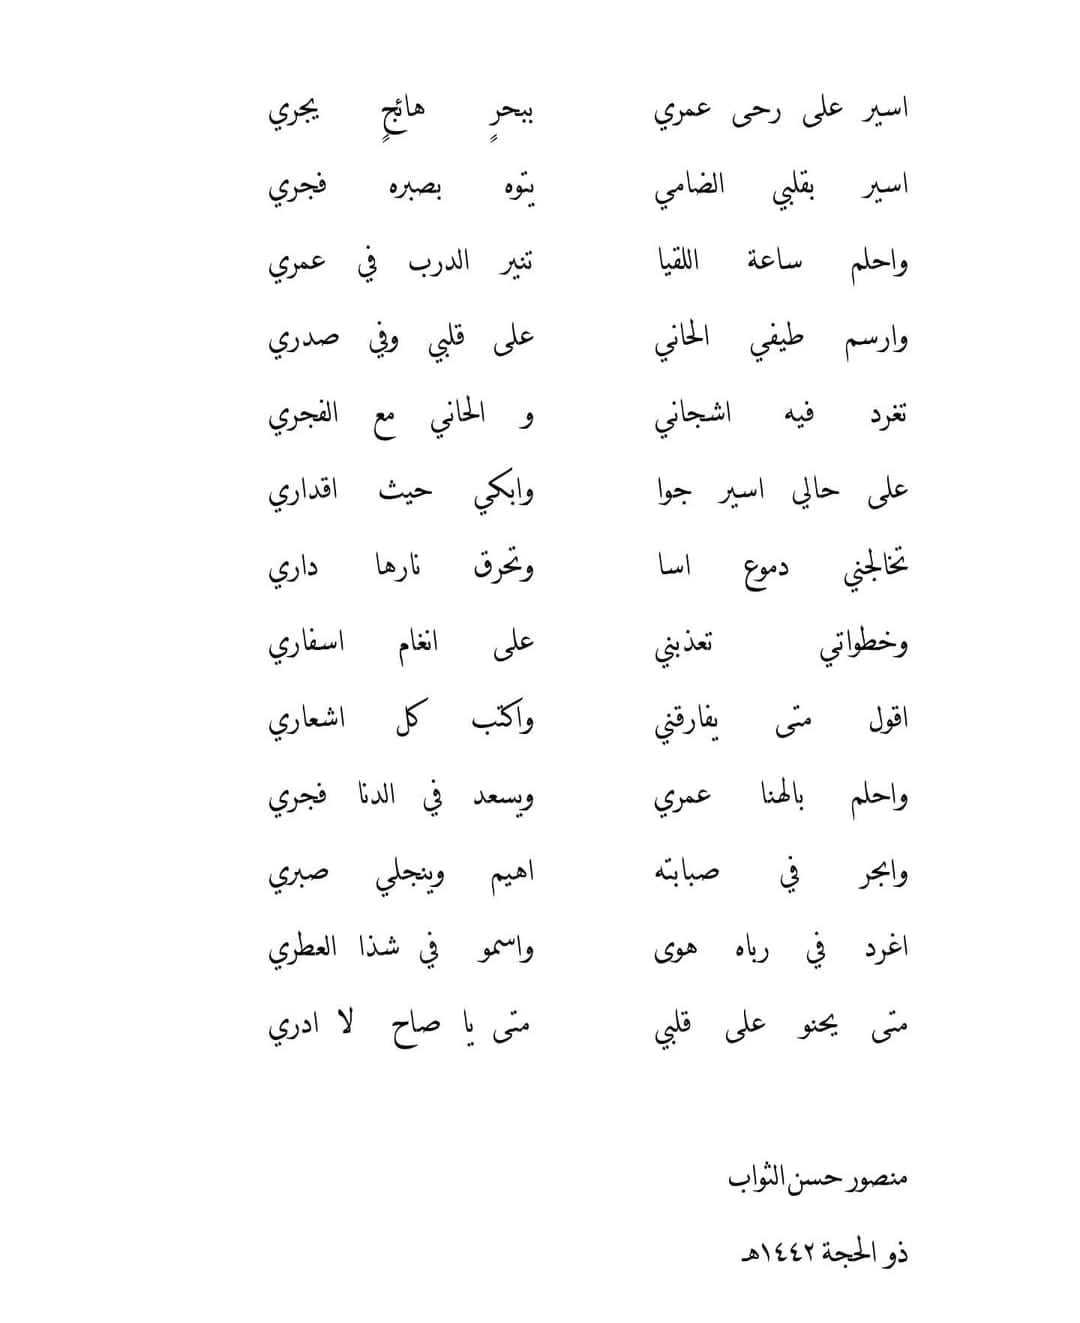 اسير على رحى عمري ببحرٍ هائجٍ يجري
اسير بقلبي الضامي يتوه بصبره فجري
واحلم ساعة اللقيا تنير الدرب في عمري
وارسم طيفي الحاني على قلبي وفي صدري
تغرد فيه اشجاني و الحاني مع الفجري
على حالي اسير جوا وابكي حيث اقداري
تخالجني دموع اسا وتحرق نارها داري
وخطواتي تعذبني على انغام اسفاري
اقول متى يفارقني واكتب كل اشعاري
واحلم بالهنا عمري ويسعد في الدنا فجري
وابحر في صبابته اهيم وينجلي صبري
اغرد في رباه هوى واسمو في شذا العطري
متى يحنو على قلبي متى يا صاح لا ادري
منصور حسن الثواب
ذو الحجة ١٤٤٢هـ